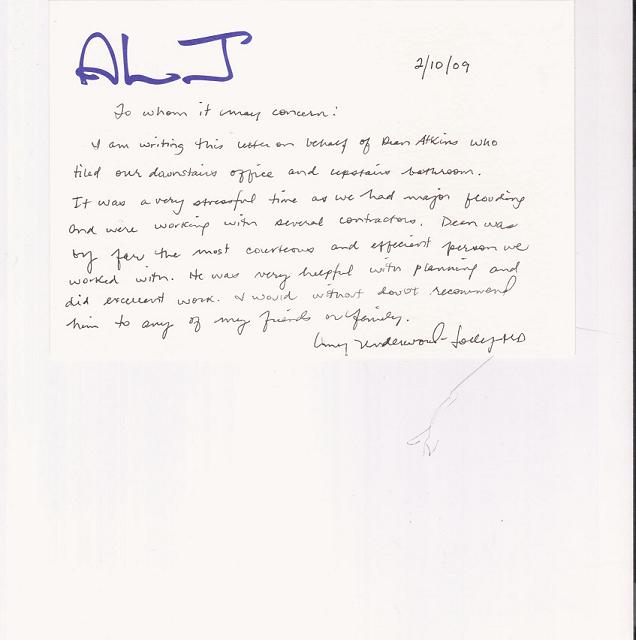 ALJ
2/10/09
To whom it may concern:
I am writing this letter on behalf of Dean Atkins who
tiled our downstairs office and upstairs bathroom.
It was a very stressful time as we had major flooding
and were working with several contractors. Dean was
by far the most courteous and efficient person we
worked with. He was very helpful with planning and
did excellent work. I would without doubt recommend
him to any of my friends or family.
Underwood- MD